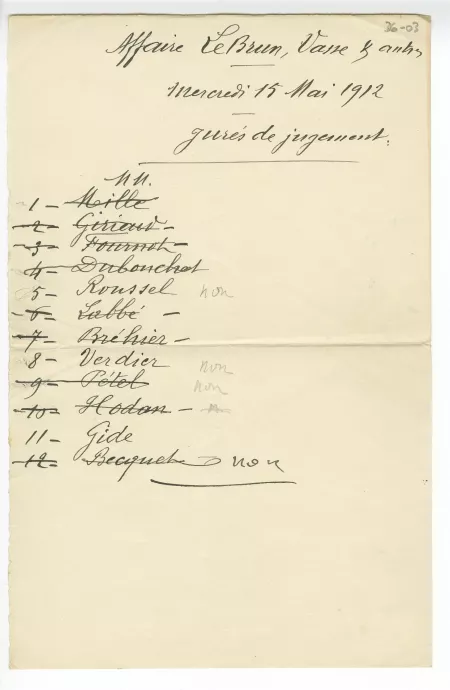 36-03
Affaire LeBrun, Vasse & autres
Mercredi 15 Mai 1912
Jurés de jugement.
MM.
1 - Mille
2 - Giriaud -
3 - Fournot -
4 - Dubouchet
5 - Roussel non
6 - Labbé -
7 - Bréhier -
8 - Verdier non
9 - Pétel non
10 - Hodan -
11 - Gide
12 - Becquet non